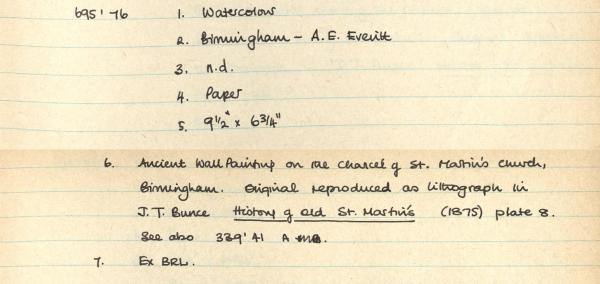 695'76 1. Watercolour
2. Birmingham - A.E. Everitt
3. n.d.
4. Paper
5. 9 1/2" x 6 3/4"
6. Ancient Wall Painting on the chancel of St. Martin's church,
Birmingham. Original reproduced as lithograph in
J.T. Bunce History of old St. Martin's (1875) plate 8.
See also 339'41 A
7. Ex BRL.